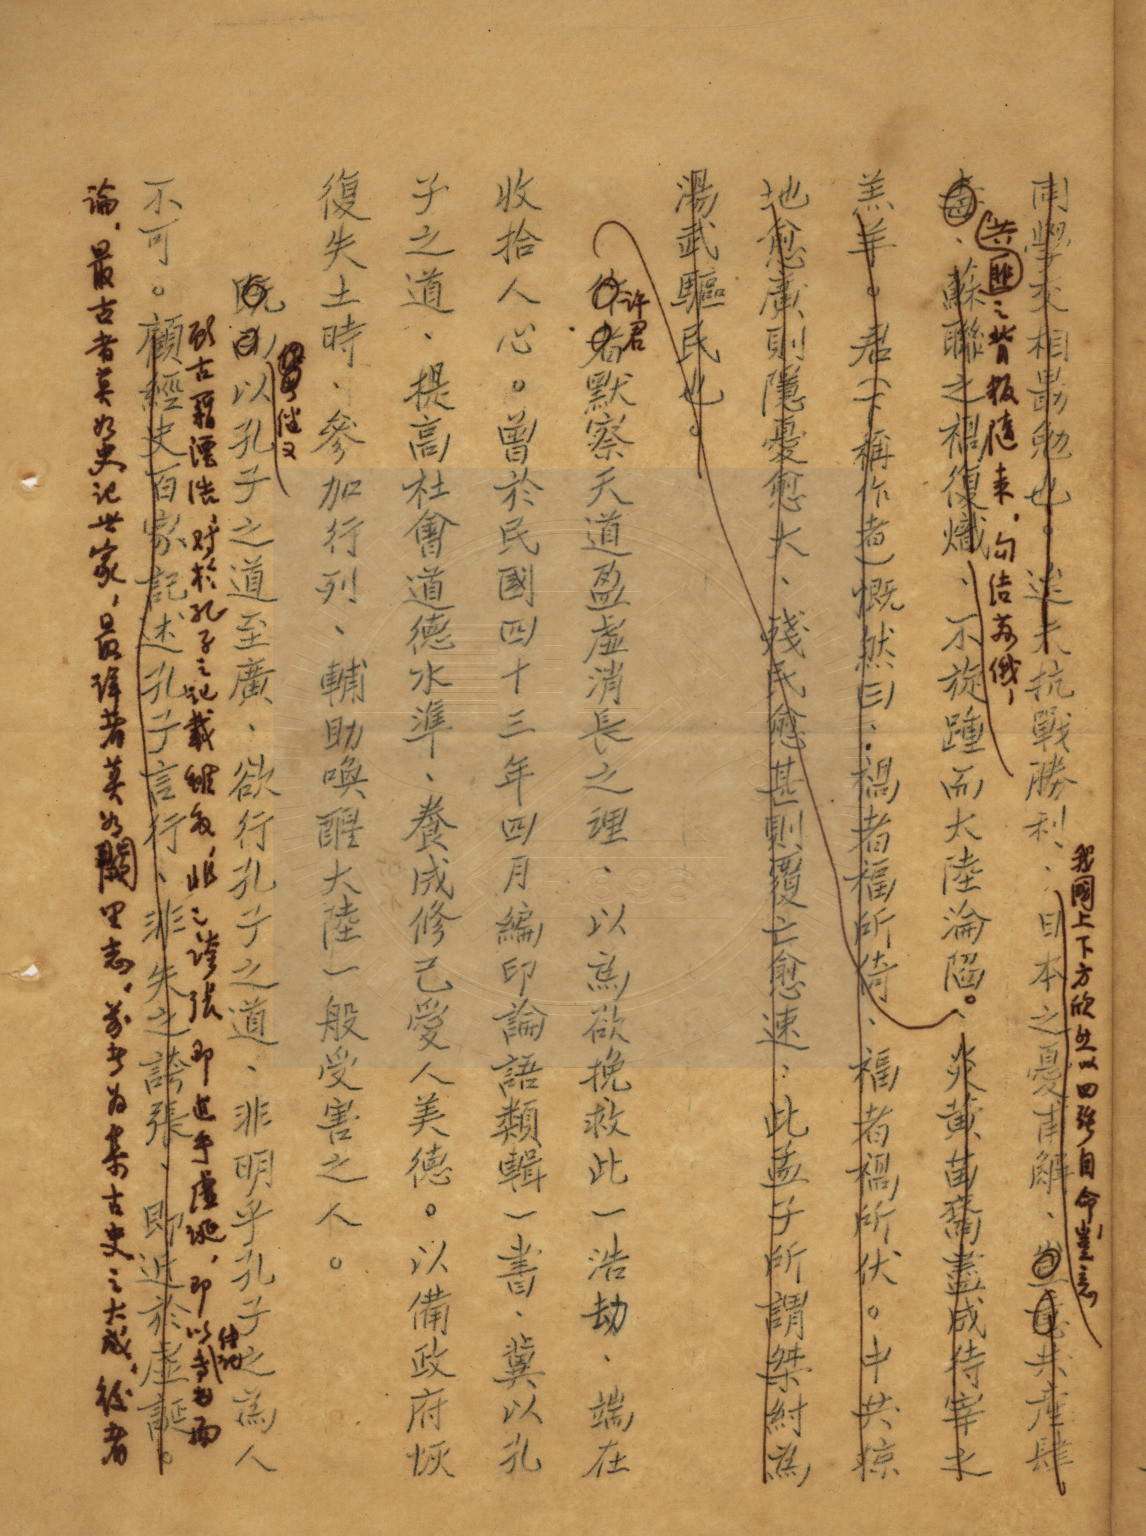 同學交相勗勉也。迨夫抗戰勝利、日本之憂甫解、豈意共產肆
我國上下方欣然以四強自命豈意
共匪之背叛隨來，勾结苏俄，
毒、蘇聯之禍復熾、不旋踵而大陸淪陷。炎黃苗裔盡成待宰之
羔羊。君(稱作者)慨然曰：禍者福所倚、福者禍所伏。中共掠
地愈廣則隱憂愈大、殘民愈甚則覆亡愈速：此孟子所謂桀紂為
湯武驅民也。
许君
作者默察天道盈虛消長之理、以為欲挽救此一浩劫、端在
收拾人心。曾於民國四十三年四月編印論語類輯一書、冀以孔
子之道、提高社會道德水準、養成修己愛人美德。以備政府恢
復失土時、參加行列、輔助喚醒大陸一般受害之人。
既而以孔子之道至廣、欲行孔子之道、非明乎孔子之為人
顾古籍浩、对於孔子之记载虽多，非之誇张即近乎虚诞，即以而
不可。顧經史百家記述孔子言行、非失之誇張、即近於虛誕。
论，最古者莫如史记世家，最详者莫如闕里志，前者为集古史之大成，後者